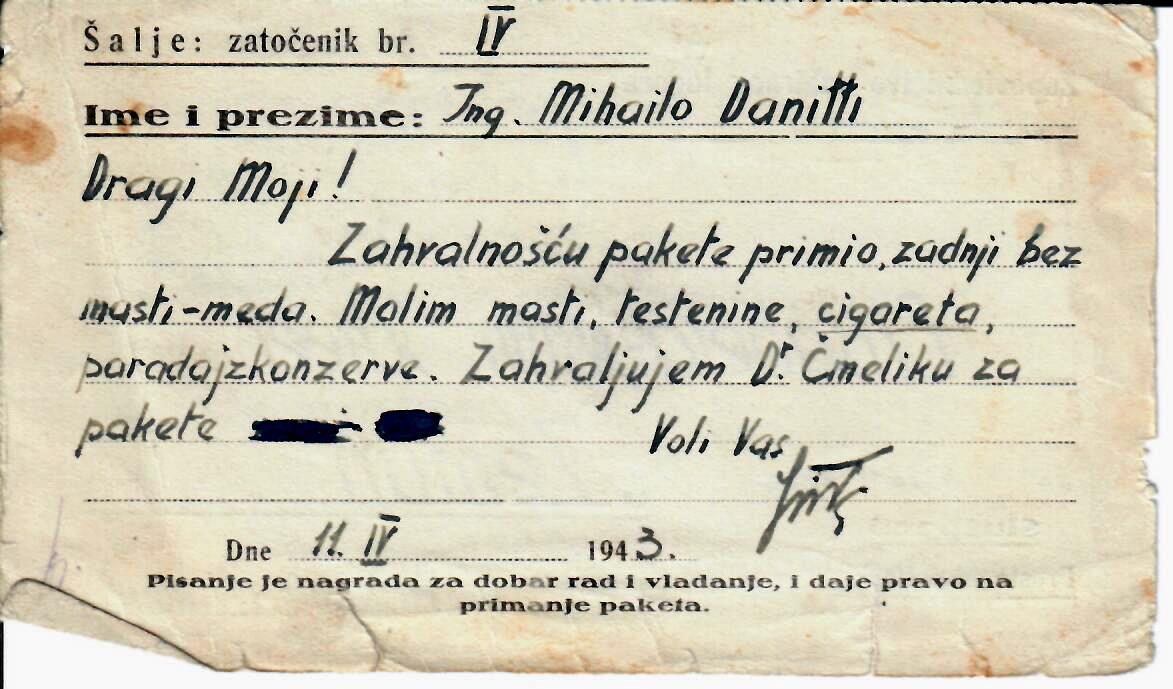 Šalje: zatočenik br. IV
Ime i prezime: Ing. Mihailo Danitti
Dragi Moji!
Zahvalnošću pakete primio, zadnji bez
masti-meda. Molim masti, testenine, cigareta,
paradajzkonzerve. Zahvaljujem Dr. Čmeliku za
pakete
Voli Vas
Dne 11. IV 1943.
Pisanje je nagrada za dobar rad i vladanje, i daje pravo na
primanje paketa.